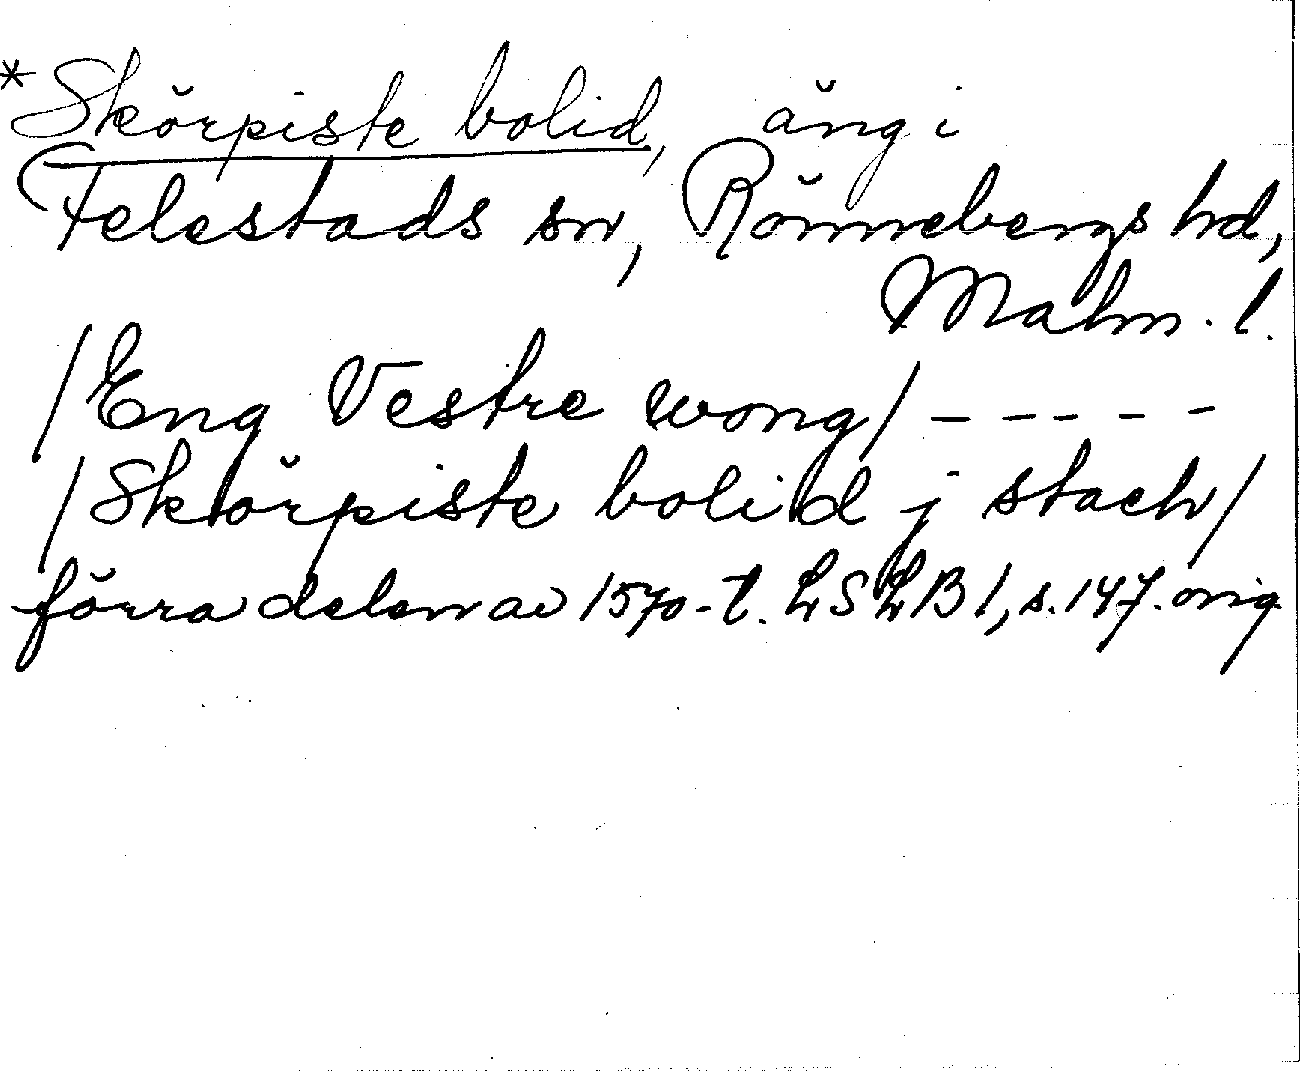 *Skörpiste bolid, äng i
Felestads sn, Rönnebergs hd,
Malm. l.
/Eng Vestre wong/ - - - - -
/Skörpiste bolid j stach/
förra delen av 1570-t. LSLB 1, s. 147. orig